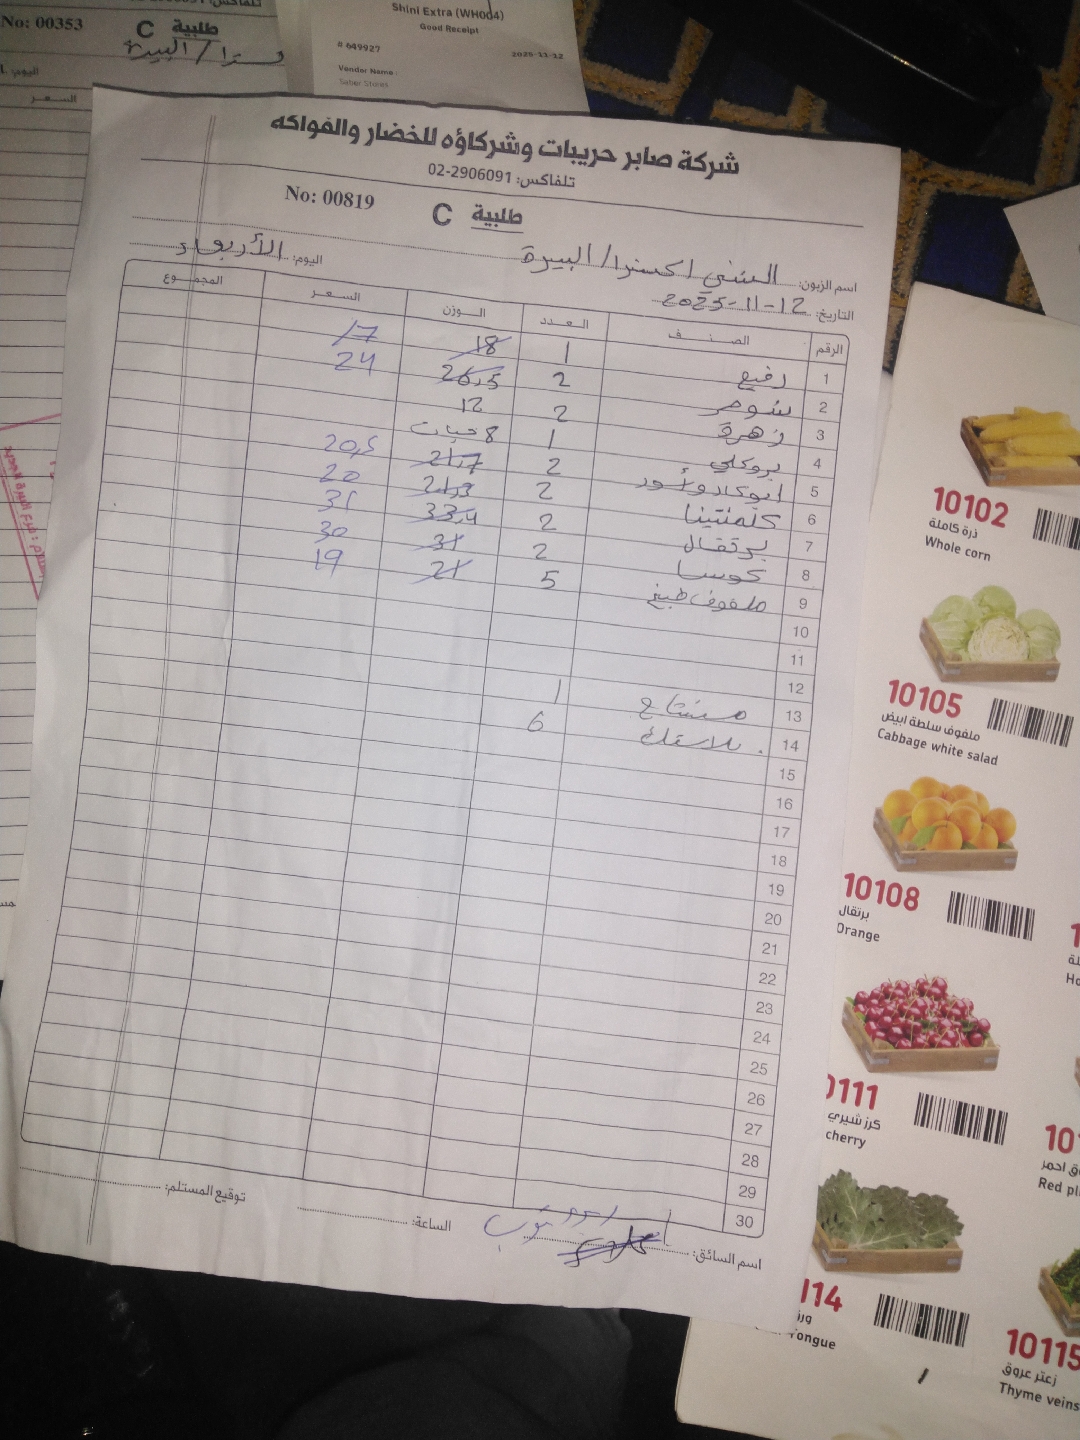 تلفاكس: 02-2906091
No: 00353
طلبية C
سترا / البيرة
اليوم:
السعر
Shini Extra (WH004)
Good Receipt
# 649927
2025-11-12
Vendor Name :
Saber Stores
شركة صابر حريبات وشركاؤه للخضار والفواكه
تلفاكس: 02-2906091
طلبية C No: 00819
اسم الزبون: الشني اكسترا / البيرة اليوم: الأربعاء
التاريخ: 12-11-2025
الرقم الصنف العدد الوزن السعر المجموع
1 رفيع 1 18 17
2 شومر 2 26,5 24
3 زهرة 2 12
4 بروكلي 1 8 حبات
5 أبوكادو أسود 2 21,7 20,5
6 كلمنتينا 2 21,3 20
7 برتقال 2 33,4 31
8 كوسا 2 31 30
9 ملفوف طبخ 5 21 19
10
11
12
13 مشتاح 1
14 بلاستك 6
15
16
17
18
19
20
21
22
23
24
25
26
27
28
29
30
اسم السائق: الساعة: توقيع المستلم:
10102
ذرة كاملة
Whole corn
10105
ملفوف سلطة ابيض
Cabbage white salad
10108
برتقال
Orange
0111
كرز شيري
cherry
114
Tongue
Red pl
10115
زعتر عروق
Thyme veins